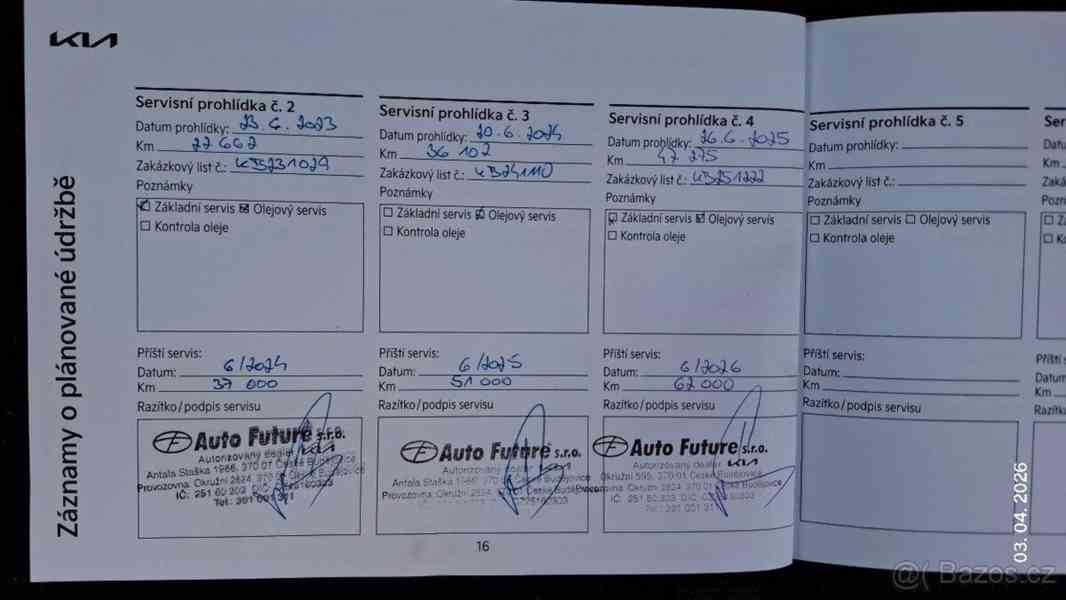 KIA
Záznamy o plánované údržbě
Servisní prohlídka č. 2
Datum prohlídky: 23.6.2023
Km 22 662
Zakázkový list č.: KB231029
Poznámky
Základní servis Olejový servis
Kontrola oleje
Příští servis:
Datum: 6/2024
Km 37 000
Razítko/podpis servisu
Auto Future s.r.o.
Autorizovaný dealer KIA
Antala Staška 1966, 370 07 České Budějovice
Provozovna: Okružní 2824, 370 01
Servisní prohlídka č. 3
Datum prohlídky: 20.6.2024
Km 36 102
Zakázkový list č.: KB24110
Poznámky
Základní servis Olejový servis
Kontrola oleje
Příští servis:
Datum: 6/2025
Km 51 000
Razítko/podpis servisu
Auto Future s.r.o.
Autorizovaný dealer KIA
Antala Staška 1966, 370
Provozovna: Okružní 2824,
Servisní prohlídka č. 4
Datum prohlídky: 26.6.2025
Km 47 275
Zakázkový list č.: KB251222
Poznámky
Základní servis Olejový servis
Kontrola oleje
Příští servis:
Datum: 6/2026
Km 62 000
Razítko/podpis servisu
Auto Future s.r.o.
Autorizovaný dealer KIA
Okružní 595, 370 01 České Budějovice
Okružní 2824, 370 01 České Budějovice
Servisní prohlídka č. 5
Datum prohlídky:
Km
Zakázkový list č.:
Poznámky
Základní servis Olejový servis
Kontrola oleje
Příští servis:
Datum:
Km
Razítko/podpis servisu
16
03. 04. 2026
@( Bazos.cz